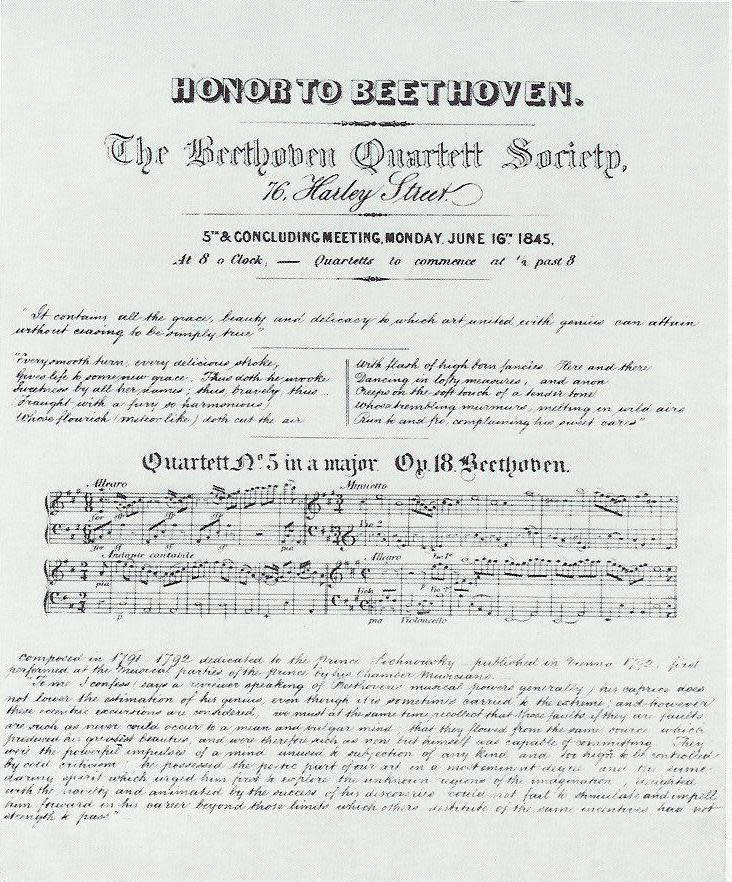 HONOR TO BEETHOVEN.
The Beethoven Quartett Society,
76, Harley Street.
5TH & CONCLUDING MEETING, MONDAY, JUNE 16TH 1845,
At 8 o Clock, — Quartetts to commence at ½ past 8
"It contains all the grace, beauty and delicacy to which art united with genius can attain
without ceasing to be simply true"
"Every smooth turn, every delicious stroke,
Gives life to some new grace. Thus doth he invoke
Sweetness by all her names; thus, bravely thus
Fraught with a fury so harmonious,
Whose flourish (meteor like) doth cut the air
With flash of high born fancies Here and there
Dancing in lofty measures, and anon
Creeps on the soft touch of a tender tone
Whose trembling murmurs, melting in wild airs
Run to and fro, complaining his sweet cares"
Quartett No. 5 in a major. Op. 18. Beethoven.
Allegro
Minuetto
for sf sf
Vio 2
for sf sf pia
Andante cantabile
Allegro
Vio 1o
pia
Viola
p Vio 2o
p
pia Violoncello
Composed in 1791 1792 dedicated to the Prince Lichnowsky published in Vienna 1792, first
performed at the Musical parties of the Prince by his Chamber Musicians.
"To me I confess, says a reviewer speaking of Beethovens musical powers generally, his caprice does
not lower the estimation of his genius, even though it is sometimes carried to the extreme; and however
these eccentric excursions are considered, we must at the same time recollect that those faults if they are faults
are such as never could occur to a mean and vulgar mind; that they flowed from the same source which
produced his greatest beauties, and were therefore such as none but himself was capable of committing. They
were the powerful impulses of a mind unused to subjection of any kind, and too high to be controlled
by cold criticism: he possessed the poetic part of our art in a most eminent degree and the same
daring spirit which urged him first to explore the unknown regions of the imagination, delighted
with the novelty and animated by the success of his discoveries could not fail to stimulate and impell
him forward in his career beyond those limits which others destitute of the same incentives had not
strength to pass"